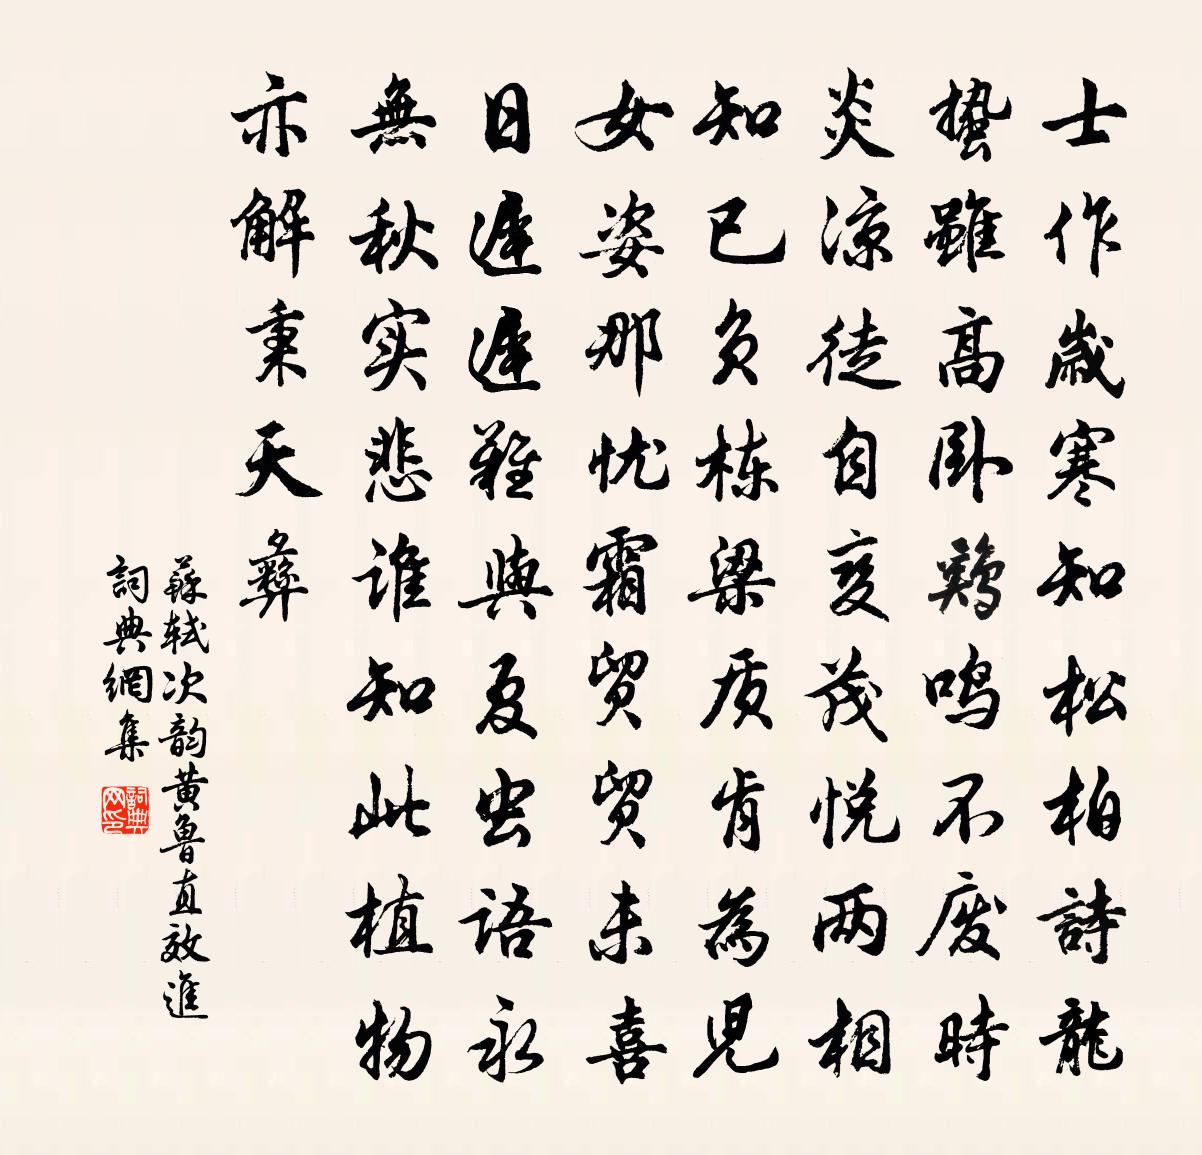 士作歲寒知松柏詩龍
蟄雖高卧鷄鳴不废時
炎凉徒自变茂悦两相
知已负栋梁质肯為児
女姿那忧霜贸贸未喜
日遲遲難與夏虫语永
無秋实悲谁知此植物
亦解秉天彝
蘇軾次韵黄鲁直效進
詞典網集
詞典网印